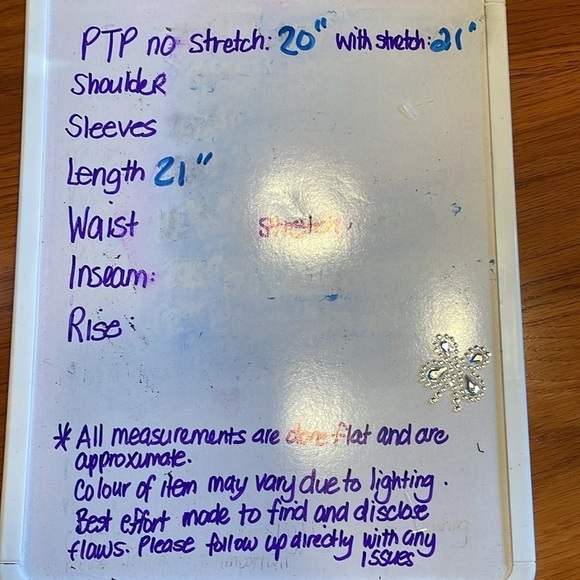 PTP no stretch: 20" with stretch: 21"
Shoulder
Sleeves
Length 21"
Waist stretch:
Inseam:
Rise:
* All measurements are done flat and are
approxumate.
Colour of item may vary due to lighting.
Best effort made to find and disclose
flaws. Please follow up directly with any
issues